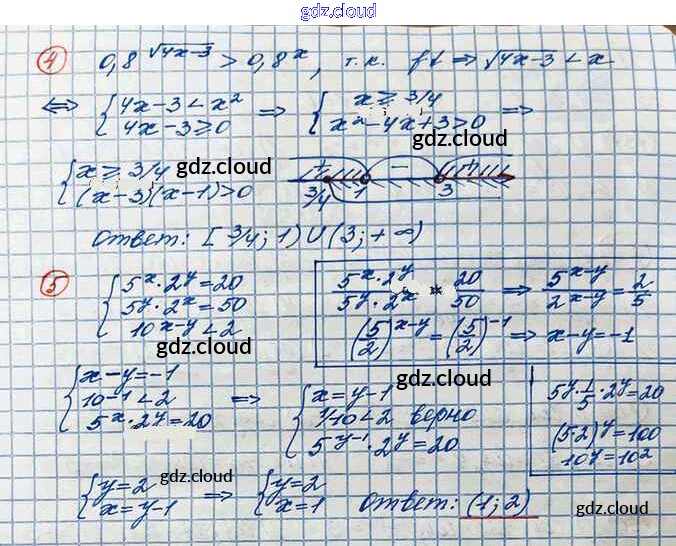 gdz.cloud
④ 0,8^√(4x-3) > 0,8^x, т.к. f↓ ⇒ √(4x-3) < x
⇔ { 4x-3 < x² ; 4x-3 ≥ 0 ⇒ { x ≥ 3/4 ; x²-4x+3 > 0 ⇒
gdz.cloud
{ x ≥ 3/4 ; (x-3)(x-1) > 0
gdz.cloud
+ − +
3/4 1 3
gdz.cloud
Ответ: [3/4; 1) ∪ (3; +∞)
⑤ { 5^x · 2^y = 20 ; 5^y · 2^x = 50 ; 10^(x-y) < 2
gdz.cloud
(5^x · 2^y)/(5^y · 2^x) = 20/50 ⇒ 5^(x-y)/2^(x-y) = 2/5
(5/2)^(x-y) = (5/2)^(-1) ⇒ x-y = -1
gdz.cloud
{ x-y = -1 ; 10^(-1) < 2 ; 5^x · 2^y = 20 ⇒ { x = y-1 ; 1/10 < 2 верно ; 5^(y-1) · 2^y = 20
gdz.cloud
gdz.cloud
5^y · 1/5 · 2^y = 20
(5·2)^y = 100
10^y = 10²
{ y = 2 ; x = y-1 ⇒ { y = 2 ; x = 1
gdz.cloud
Ответ: (1; 2)
gdz.cloud